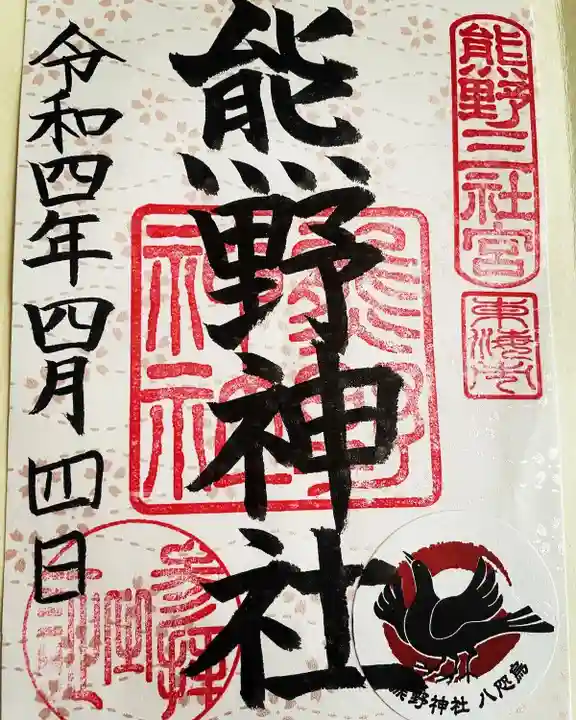 熊野三社宮
東海市
熊野神社
令和四年四月四日
熊野神社
参拝
熊野神社 八咫烏